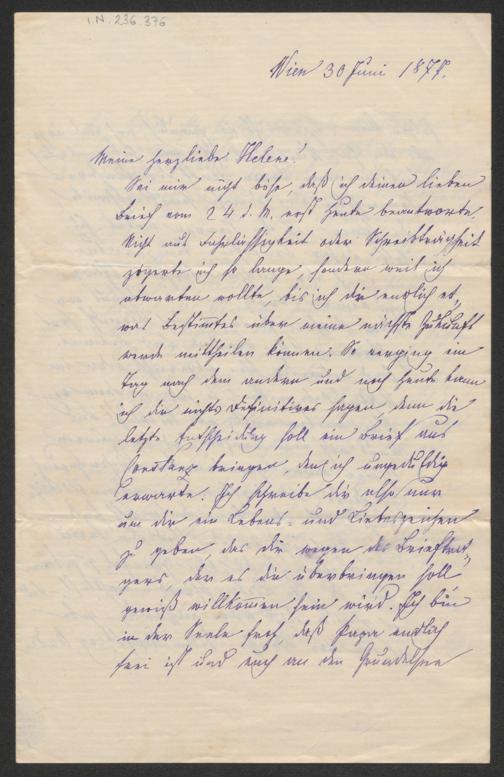 I.N. 236.376
Wien 30 Juni 187
Meine herzliebe Helene!
Sei mir nicht böse, daß ich deinen lieben
Brief vom 24 d. M. erst heute beantworte.
Nicht aus Fahrlässigkeit oder Schreibträgheit
zögerte ich so lange, sondern weil ich
abwarten wollte, bis ich dir endlich et-
was Bestimmtes über meine nächste Zukunft
werde mittheilen können. So verging ein
Tag nach dem andern und noch heute kann
ich dir nichts Definitives sagen, denn die
letzte Entscheidung soll ein Brief aus
Constanz bringen, den ich ungeduldig
erwarte. Ich schreibe dir also nur
um dir ein Lebens- und Liebeszeichen
zu geben, das dir wegen des Briefträ-
gers, der es dir überbringen soll
gewiß willkommen sein wird. Ich bin
in der Seele froh, daß Papa endlich
frei ist und euch an den Grundelsee